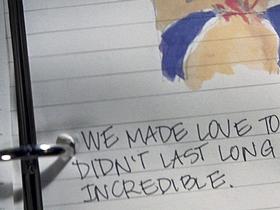 WE MADE LOVE TO
DIDN'T LAST LONG
INCREDIBLE.